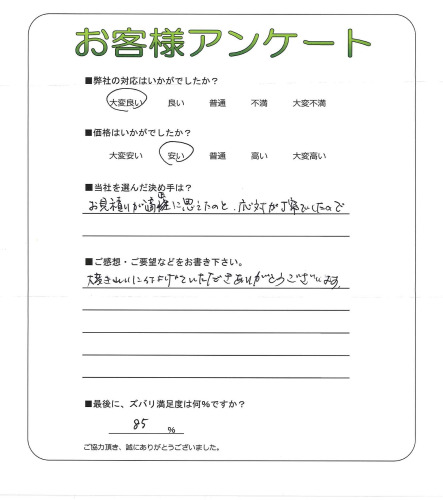 お客様アンケート
■弊社の対応はいかがでしたか?
大変良い 良い 普通 不満 大変不満
■価格はいかがでしたか?
大変安い 安い 普通 高い 大変高い
■当社を選んだ決め手は?
お見積りが適正に思えたのと、応対が丁寧でしたので
■ご感想・ご要望などをお書き下さい。
大変きれいに仕上げていただきありがとうございます。
■最後に、ズバリ満足度は何%ですか?
85 %
ご協力頂き、誠にありがとうございました。